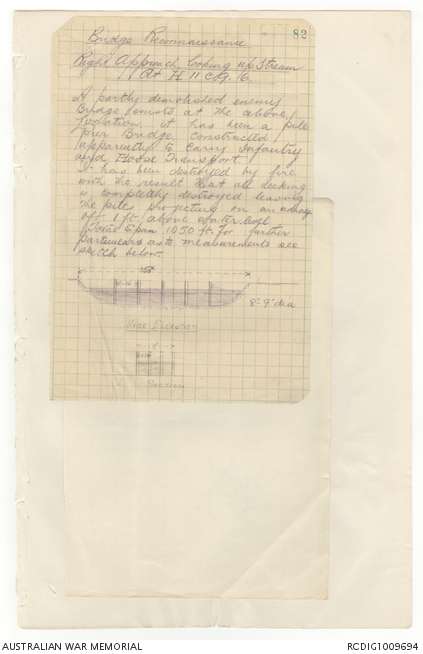 82
Bridge Reconnaissance
Right Approach looking up Stream
At H 11 c.9.6.
A partly demolished enemy
Bridge exists at the above
location it has been a pile
pier Bridge constructed
apparently to carry Infantry
and Horse Transport
It has been destroyed by fire
with the result that all decking
is completely destroyed leaving
the piles projecting on an average
of 1 ft above water level
Total Span 1050 ft. For further
particulars as to measurements see
sketch below.
8"-9" dia
Side Elevation
Section
AUSTRALIAN WAR MEMORIAL
RCDIG1009694